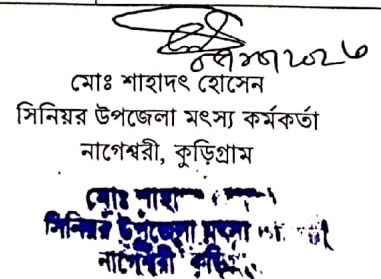 মোঃ শাহাদৎ হোসেন
সিনিয়র উপজেলা মৎস্য কর্মকর্তা
নাগেশ্বরী, কুড়িগ্রাম
মোঃ শাহা
সিনিয়র উপজেলা মৎস্য
নাগেশ্বরী কুড়ি